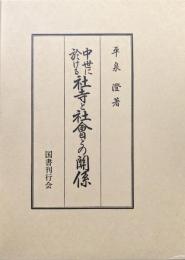 平泉 澄 著
中世に
於ける
社寺と社會との關係
国書刊行会